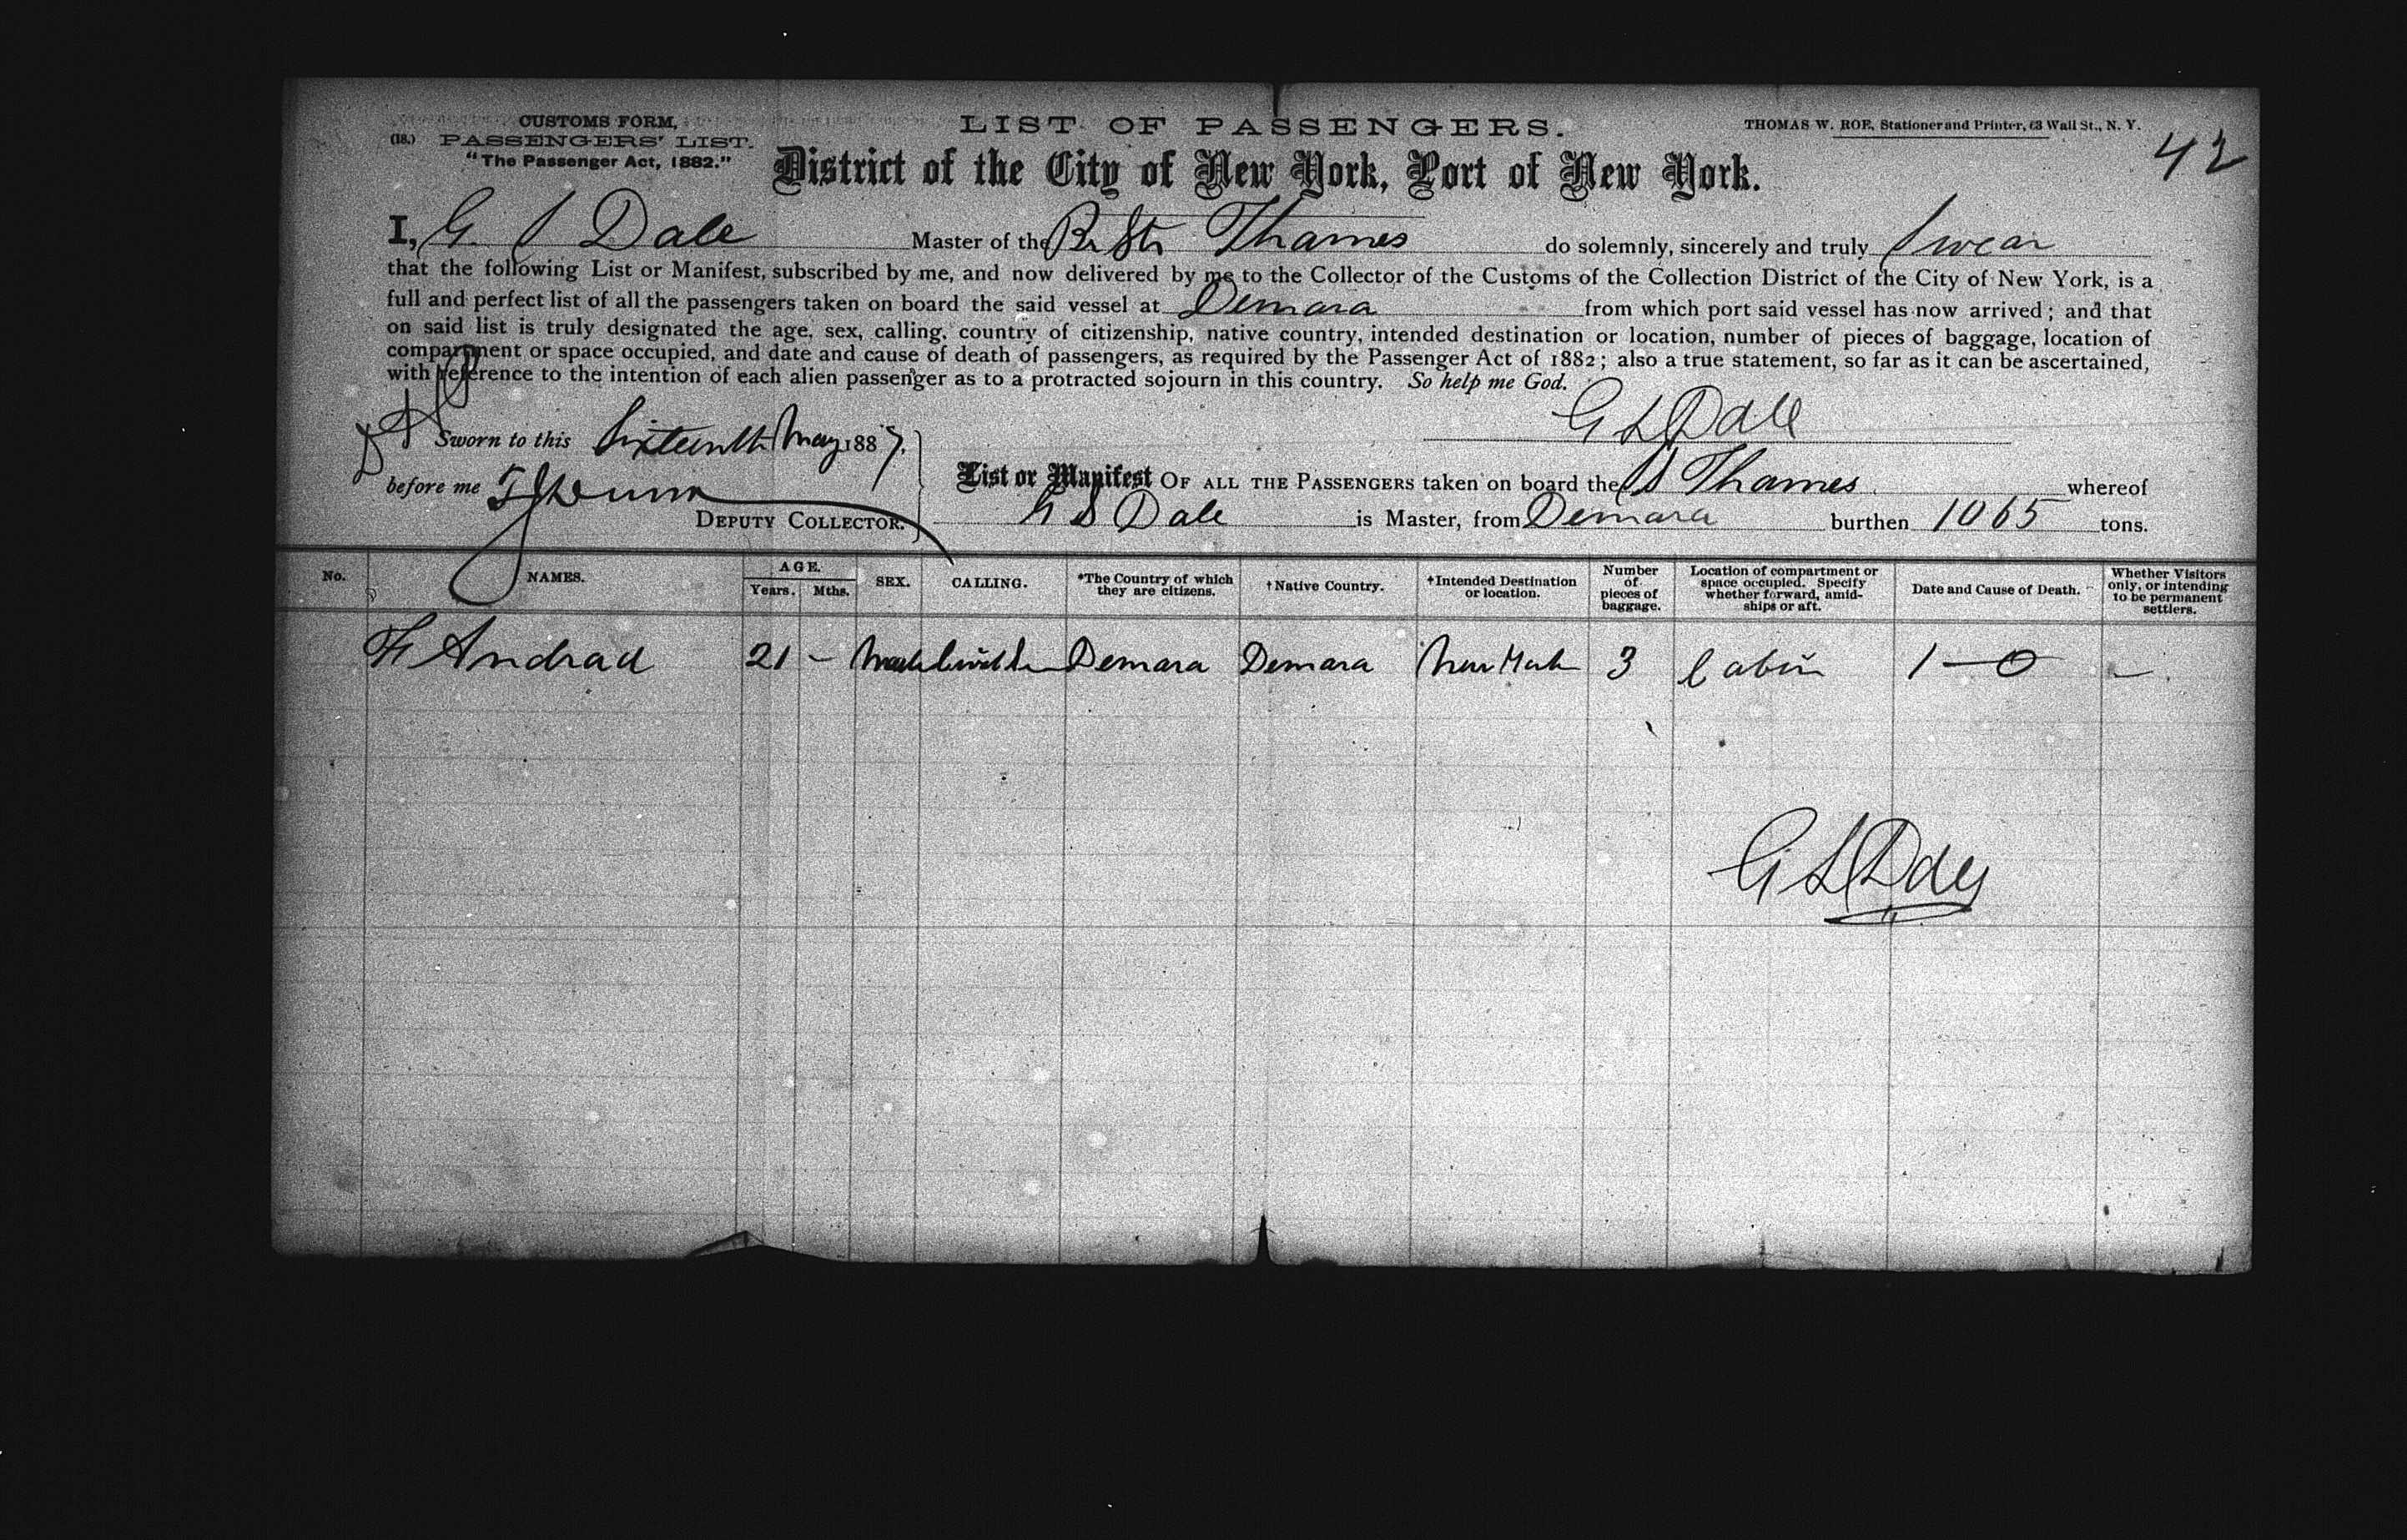 CUSTOMS FORM,
(18.) PASSENGERS' LIST.
"The Passenger Act, 1882."
LIST OF PASSENGERS.
THOMAS W. ROE, Stationer and Printer, 63 Wall St., N. Y.
42
District of the City of New York, Port of New York.
I, G. S Dale Master of the Br Str Thames do solemnly, sincerely and truly Swear
that the following List or Manifest, subscribed by me, and now delivered by me to the Collector of the Customs of the Collection District of the City of New York, is a
full and perfect list of all the passengers taken on board the said vessel at Demara from which port said vessel has now arrived; and that
on said list is truly designated the age, sex, calling, country of citizenship, native country, intended destination or location, number of pieces of baggage, location of
compartment or space occupied, and date and cause of death of passengers, as required by the Passenger Act of 1882; also a true statement, so far as it can be ascertained,
with reference to the intention of each alien passenger as to a protracted sojourn in this country. So help me God.
G S Dale
Sworn to this Sixteenth May 1887.
before me
DEPUTY COLLECTOR.
List or Manifest OF ALL THE PASSENGERS taken on board the SS Thames whereof
G S Dale is Master, from Demara burthen 1065 tons.
No. NAMES. AGE. Years. Mths. SEX. CALLING. *The Country of which they are citizens. †Native Country. †Intended Destination or location. Number of pieces of baggage. Location of compartment or space occupied. Specify whether forward, amidships or aft. Date and Cause of Death. Whether Visitors only, or intending to be permanent settlers.
F Andrad 21 - Male Demara Demara New York 3 Cabin 1—0 —
G S Dale